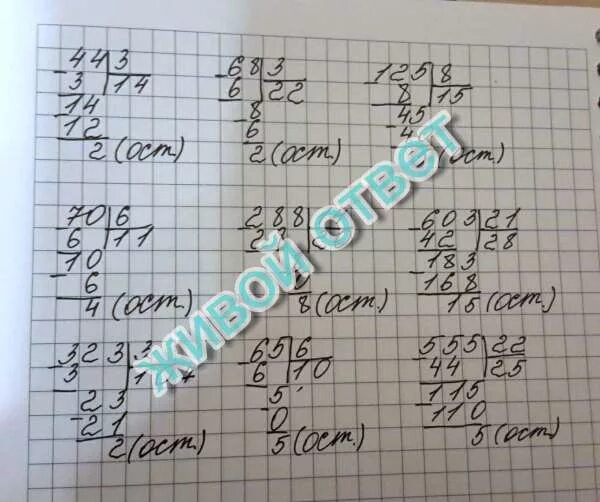 44|3
3|14
14
12
2 (ост.)
68|3
6|22
8
6
2 (ост.)
125|8
8|15
45
4
(ост.)
70|6
6|11
10
6
4 (ост.)
288
2
8 (ост.)
603|21
42|28
183
168
15 (ост.)
323|3
3|1
23
21
2 (ост.)
65|6
6|10
5
0
5 (ост.)
555|22
44|25
115
110
5 (ост.)
ЖИВОЙ ОТВЕТ